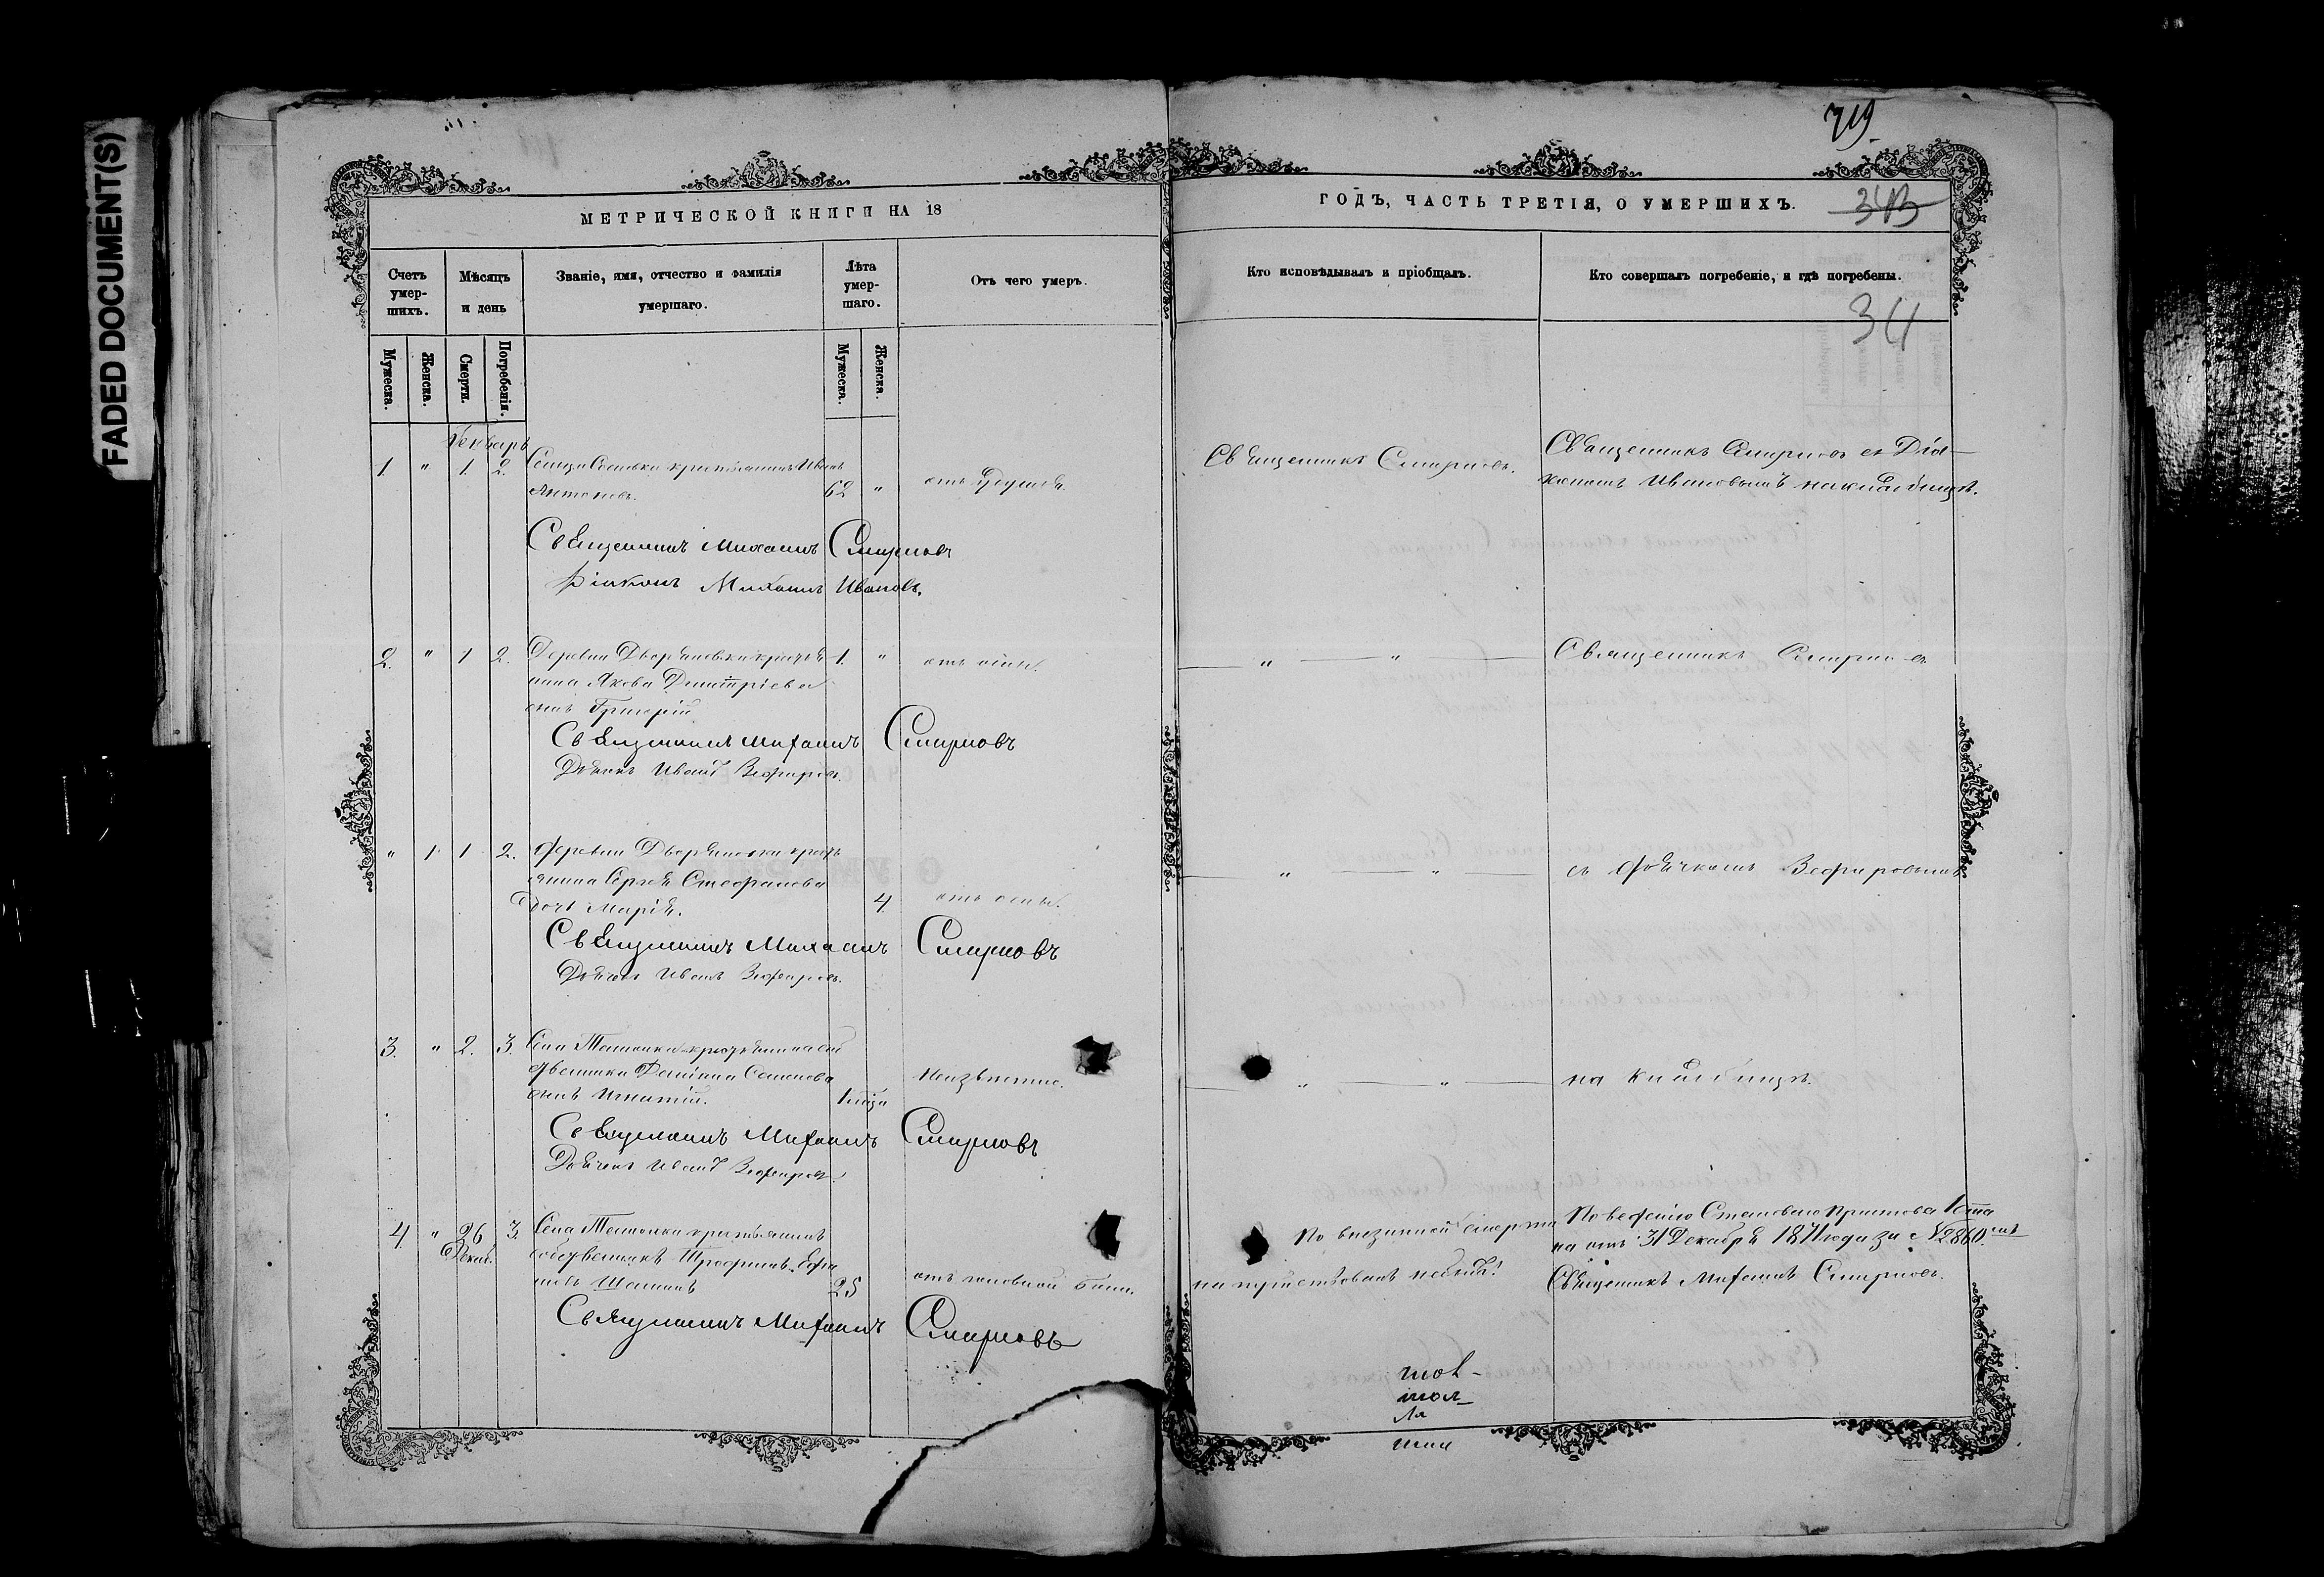 FADED DOCUMENT(S)
719
МЕТРИЧЕСКОЙ КНИГИ НА 18
ГОДЪ, ЧАСТЬ ТРЕТІЯ, О УМЕРШИХЪ.
343
Счетъ умер-шихъ.
Мѣсяцъ и день
Званіе, имя, отчество и фамилія умершаго.
Лѣта умер-шаго.
Отъ чего умеръ.
Кто исповѣдывалъ и пріобщалъ.
Кто совершалъ погребеніе, и гдѣ погребены.
34
Мужеска.
Женска.
Смерти.
Погребенія.
Мужеска.
Женска.
Генварь
1 " 1 2. крестьянинъ Иванъ
Антоновъ. 62 "
Священникъ Смирновъ.
Священникъ Смирновъ съ Діа-
кономъ Ивановымъ на кладбищѣ.
Священникъ Михаилъ Смирновъ
Діаконъ Михаилъ Ивановъ.
2. " 1 2. Деревни Дворяновки крестья- 1. " отъ оспы.
нина Якова Димитріева
сынъ Григорій
" " Священникъ Смирновъ
Священникъ Михаилъ Смирновъ
Дьячекъ Иванъ Зефировъ.
" 1 1 2. Деревни Дворяновки кресть
янина Сергѣя Стефанова
дочь Марія. 4 отъ оспы.
" " съ Дьячкомъ Зефировымъ
Священникъ Михаилъ Смирновъ
Дьячекъ Иванъ Зефировъ.
3. " 2. 3. Села
Семенова
сынъ Игнатій. 1 мѣся
Неизвѣстно.
" " на кладбищѣ.
Священникъ Михаилъ Смирновъ
Дьячекъ Иванъ Зефировъ.
4. " 26 3. Села крестьянинъ
Декаб. собственникъ Трофимъ
25
отъ головной боли.
По внезапной смерти
на путствованъ не былъ!
По веденію Становаго Пристава 1 стана
на отъ 31 Декабря 1871 года за № 2860.
Священникъ Михаилъ Смирновъ.
Священникъ Михаилъ Смирновъ